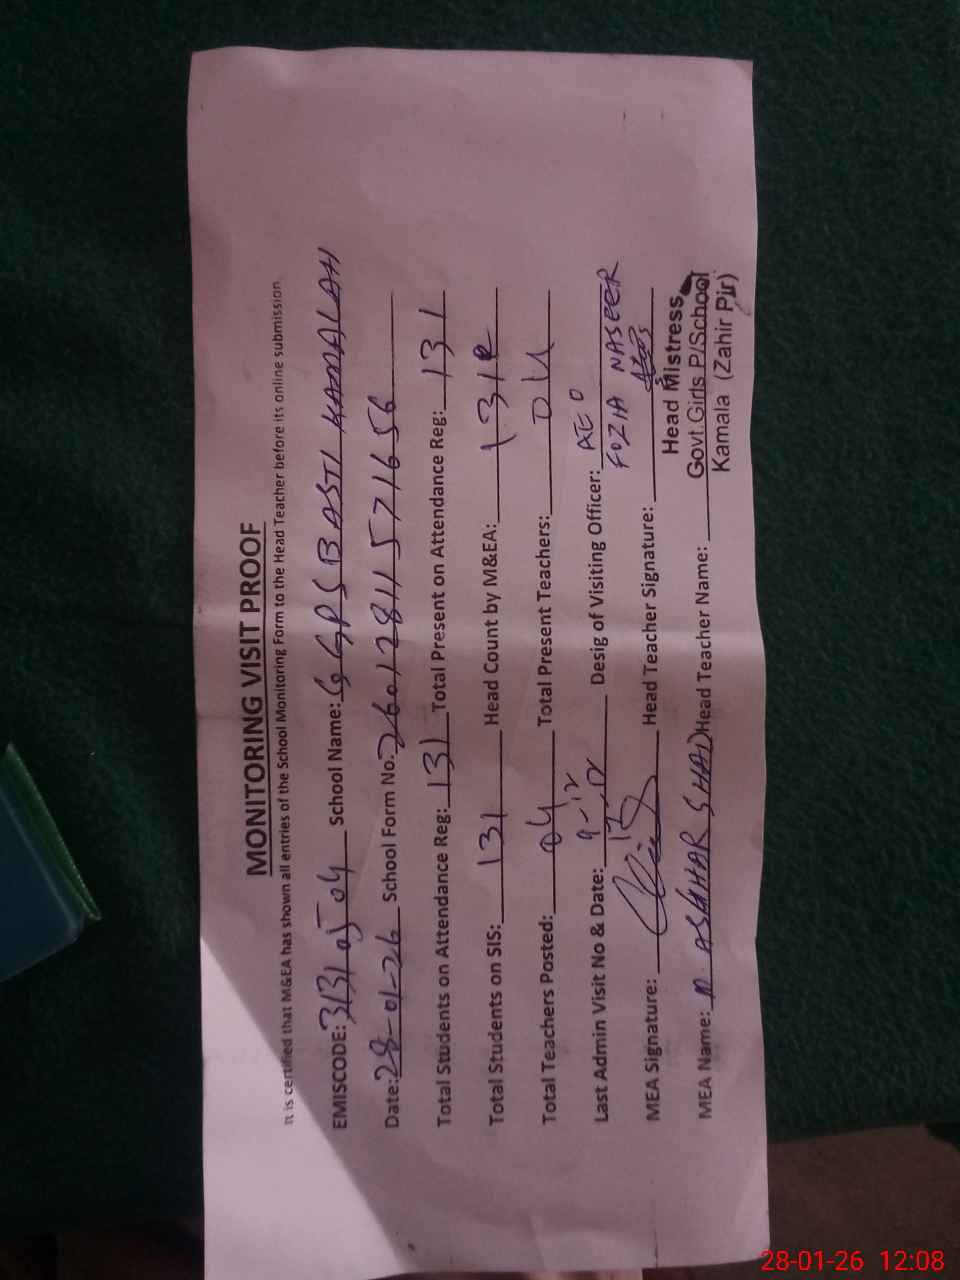 MONITORING VISIT PROOF
It is certified that M&EA has shown all entries of the School Monitoring Form to the Head Teacher before its online submission.
EMISCODE: 31310504 School Name: GGPS BASTI KAMALAH
Date: 28-01-26 School Form No. 26012811571656
Total Students on Attendance Reg: 131 Total Present on Attendance Reg: 131
Total Students on SIS: 131 Head Count by M&EA: 131
Total Teachers Posted: 04 Total Present Teachers: 04
Last Admin Visit No & Date: 9-12 Desig of Visiting Officer: AEO
FOZIA NASEER
MEA Signature: Head Teacher Signature:
Head Mistress
MEA Name: M. ASGHAR SHAD Head Teacher Name: Govt. Girls P/School
Kamala (Zahir Pir)
28-01-26 12:08